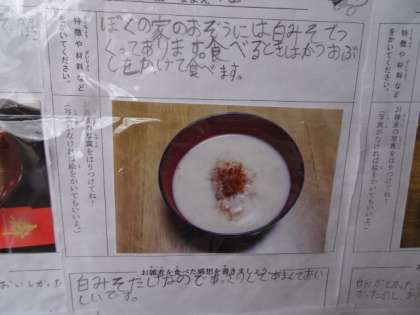 特徴や材料など
をかいてください。
ぼくの家のおぞうには白みそでつ
くってあります。食べるときはかつおぶ
しをかけて食べます。
お雑煮の写真をはりつけてね！
（写真がなければ絵をかいてもいいよ♪）
お雑煮を食べた感想を書きましょう
白みそだけなので
まくておい
しいです。
特徴や材料など
をかいてください。
お雑煮の写真をはりつけてね！
（写真がなければ絵をかいてもいいよ♪）
おいしかった